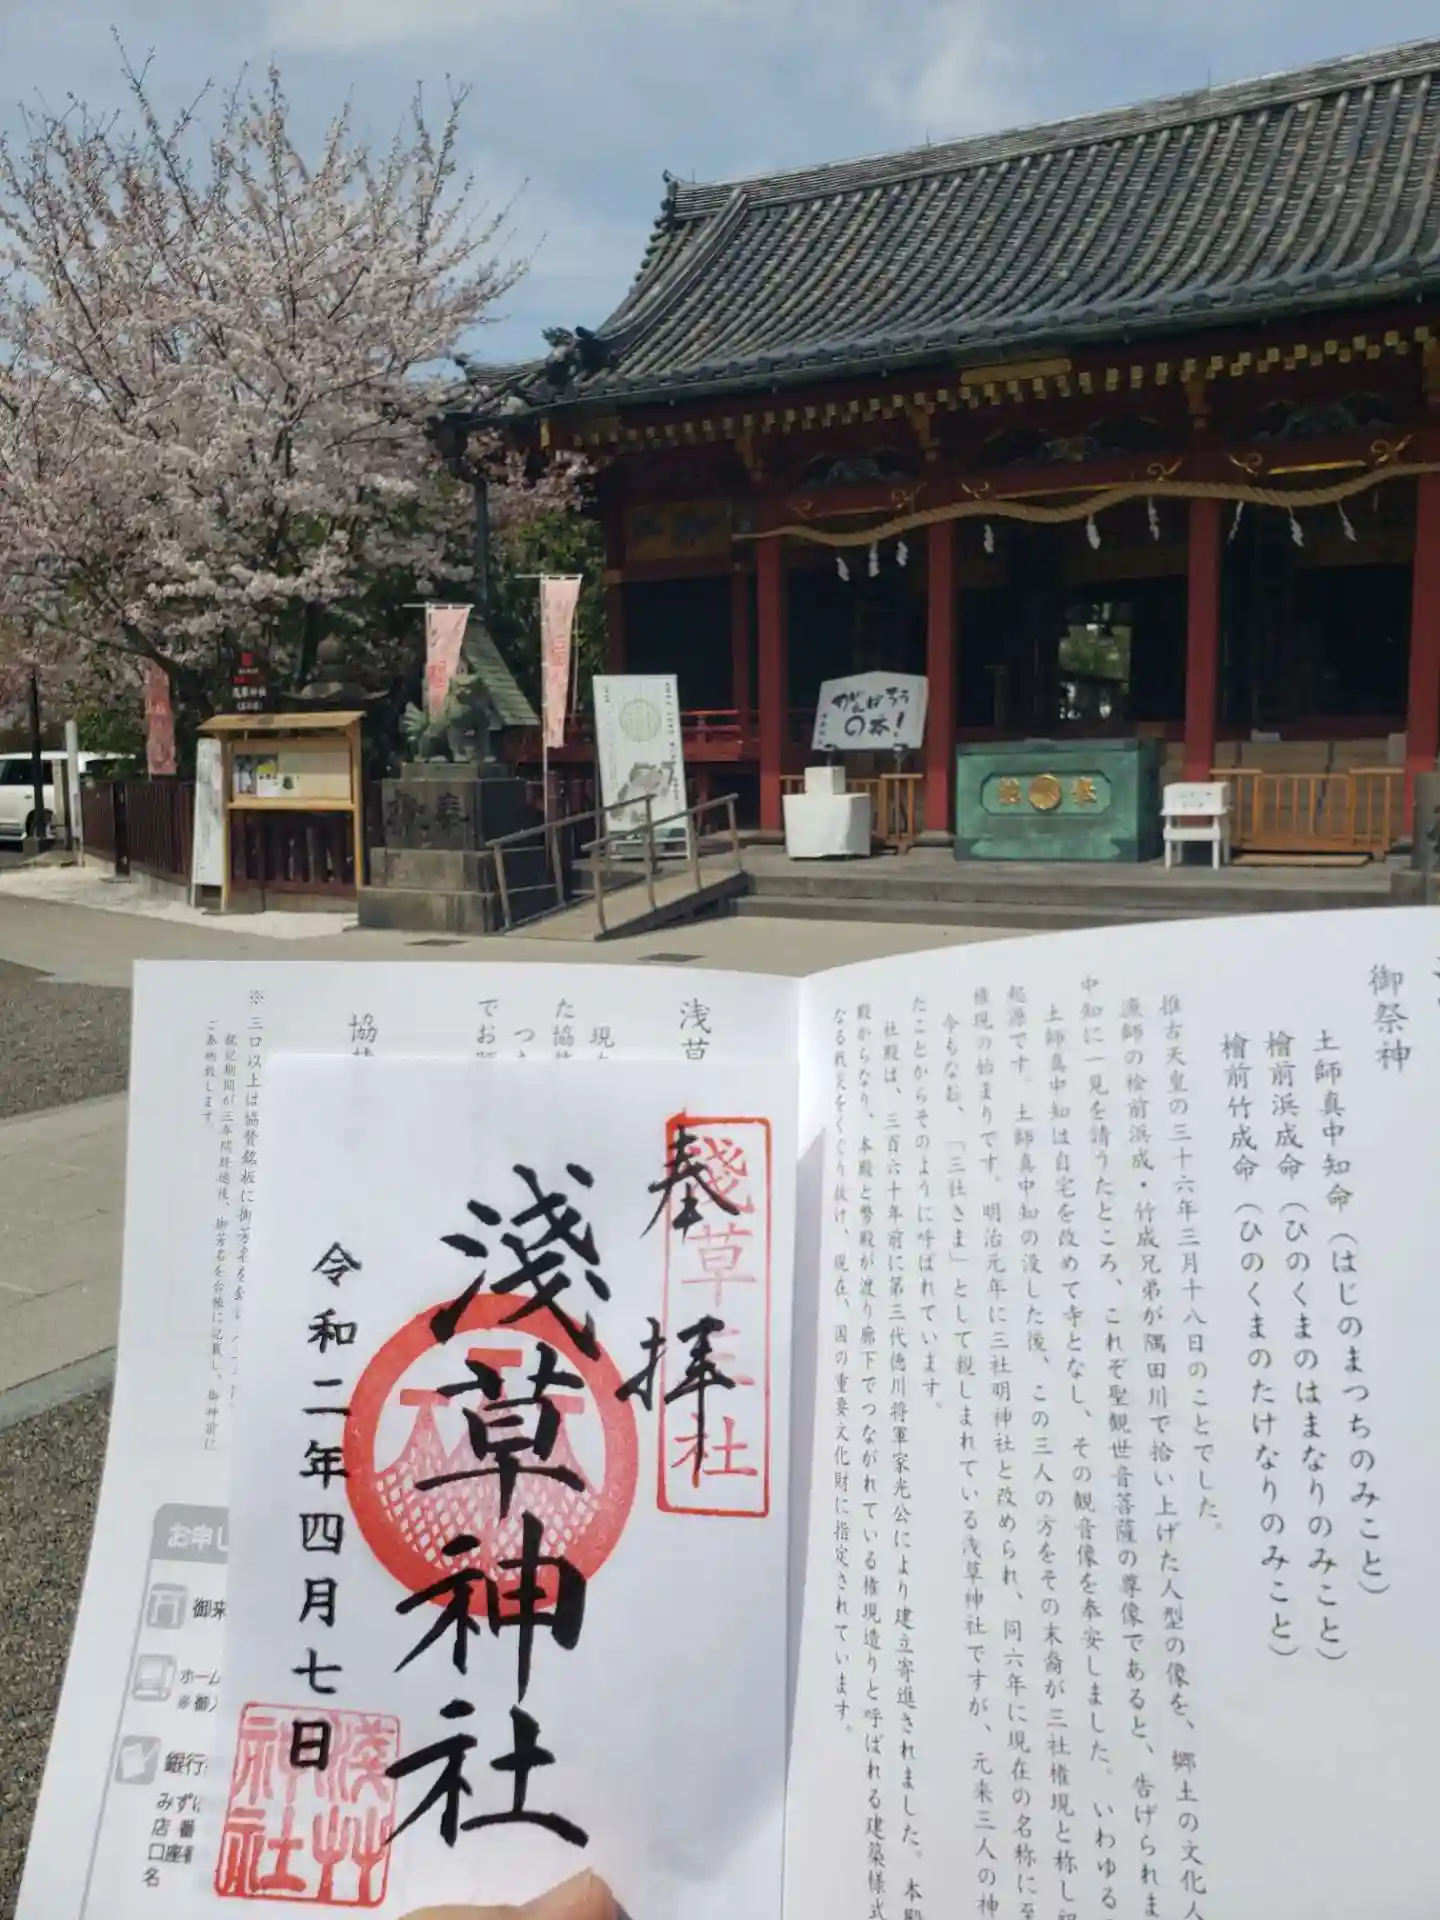 がんばろう
日本!
奉
御祭神
土師真中知命(はじのまつちのみこと)
檜前浜成命(ひのくまのはまなりのみこと)
檜前竹成命(ひのくまのたけなりのみこと)
推古天皇の三十六年三月十八日のことでした。
漁師の桧前浜成・竹成兄弟が隅田川で拾い上げた人型の像を、郷土の文化人
中知に一見を請うたところ、これぞ聖観世音菩薩の尊像であると、告げられま
土師真中知は自宅を改めて寺となし、その観音像を奉安しました。いわゆる
起源です。土師真中知の没した後、この三人の方をその末裔が三社権現と称し
権現の始まりです。明治元年に三社明神社と改められ、同六年に現在の名称に至
今もなお、「三社さま」として親しまれている浅草神社ですが、元来三人の神
たことからそのように呼ばれています。
社殿は、三百六十年前に第三代徳川将軍家光公により建立寄進されました。本殿
殿からなり、本殿と幣殿が渡り廊下でつながれている権現造りと呼ばれる建築様式
なる戦災をくぐり抜け、現在、国の重要文化財に指定されています。
浅草
現
た協
つ
でお
協
※三口以上は協賛銘板に御芳名を
銘記期間が三年間経過後、御芳名を台帳に記載し、御神前に
ご奉納致します。
お申し
御来
ホーム
※御
銀行
みず
店番
口座番
名
奉拝
淺草三社
淺草神社
令和二年四月七日
浅草神社